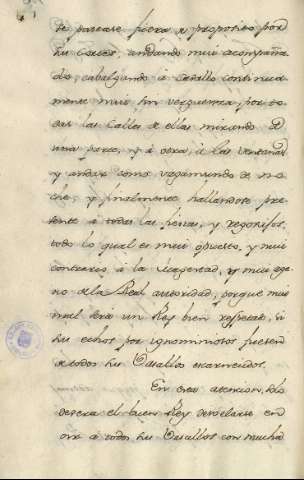 de pasearse fuera de proposito por
su Corte, andando mui acompaña
do, cabalgando à Cavallo continua
mente mui sin verguenza por to
das las Calles de ellas mirando à
una parte, y à otra, à las ventanas
y andar como vagamundo de no
che, y finalmente hallandose pre
sente à todas las fiestas, y regocijos,
todo lo qual es mui opuesto, y mui
contrario à la Magestad, y mui age
no de la Real autoridad, porque mui
mal será un Rey bien respetado, si
sus echos por ignominiosos fuesen
de todos sus Vasallos escarnecidos.
En esta atencion, solo
deverá el buen Rey desvelarse en
oir à todos sus Vasallos con mucha